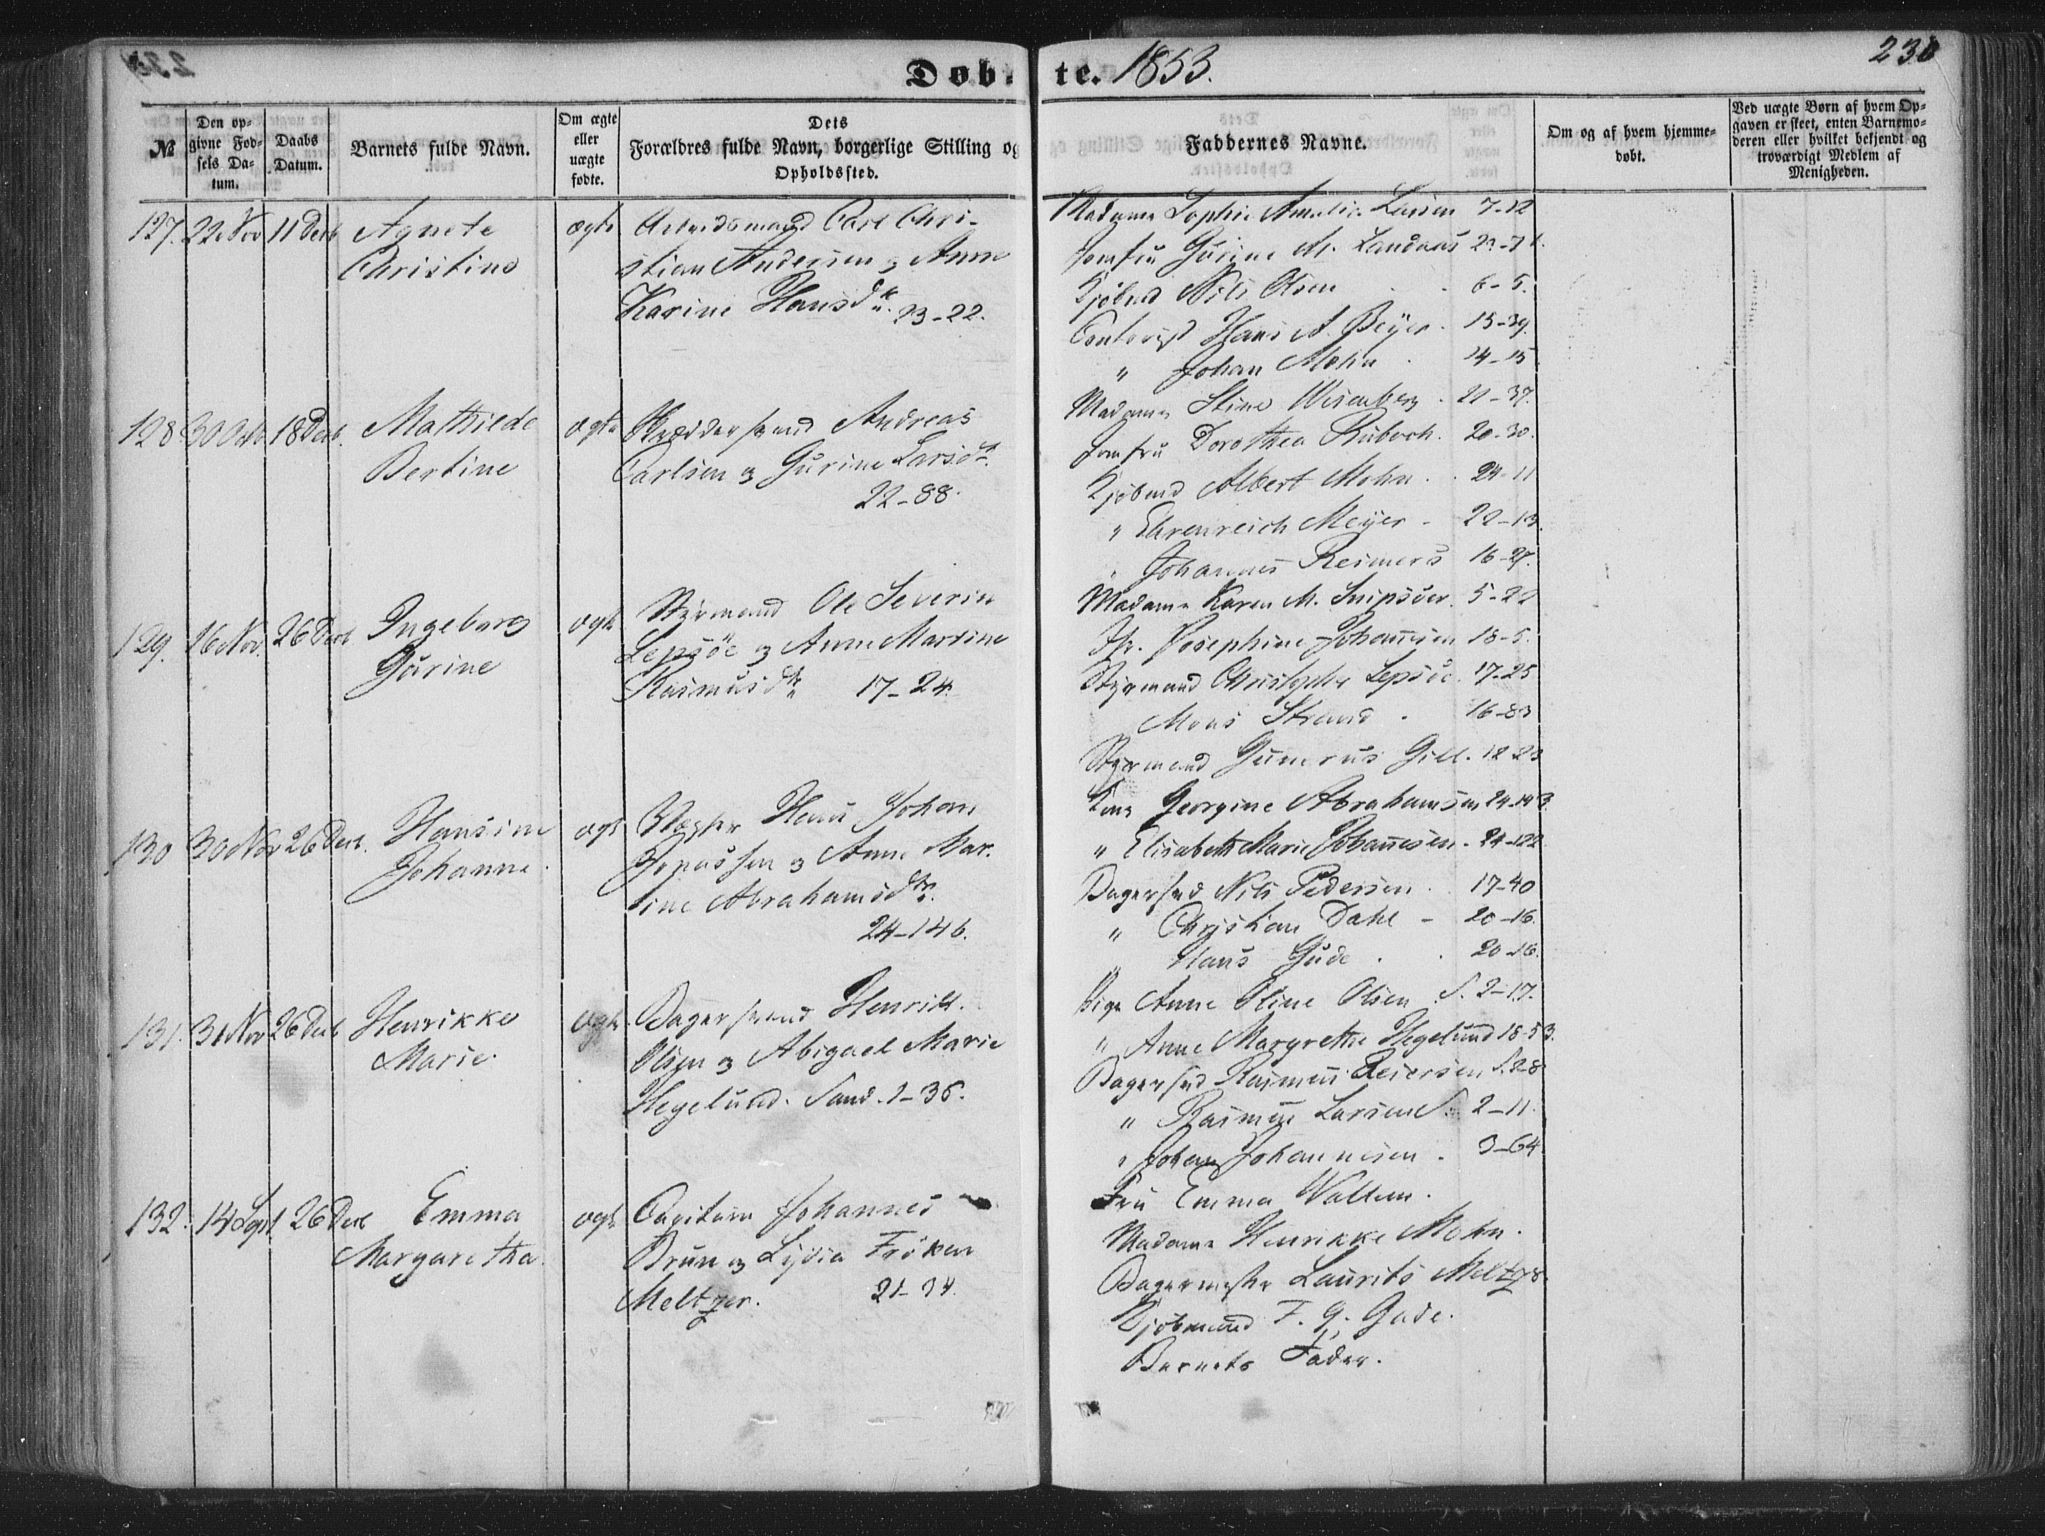 Døbte. 1853.
238
№
Den opgivne Fødsels Datum.
Daabs Datum.
Barnets fulde Navn.
Om ægte eller uægte fødte.
Dets Forældres fulde Navn, borgerlige Stilling og Opholdssted.
Faddernes Navne.
Om og af hvem hjemmedøbt.
Ved uægte Børn af hvem Opgaven er skeet, enten Barnemoderen eller hvilket bekjendt og troværdigt Medlem af Menigheden.
127. 22 Nov 11 Decb Agnete
Christine
ægte
Arbeidsmand Carl Chri-
stian Andersen og Anne
Karine Hansdtr. 23-22.
Madame Sophie Amalie Larsen 7-12
Jomfru Gurine M. Landaas
Kjøbmd Nils Olsen 6-5.
Contorist Hans A. Beyer. 15-39.
" Johan Mohn 14-15
128 30 Octr 18 Decb. Mathilde
Bertine
ægte
Andreas
Carlsen og Gurine Larsdtr.
22-88.
Madame Stine Wesenberg 21-37.
Jomfru Dorothea 20-30.
Kjøbmd Albert Mohn 24-11
" Ehrenreich Meyer 22-13.
" Johannes Reimers 16-27.
129. 16 Nov. 26 Decb Ingeborg
Gurine
ægte
Styrmand Ole Severin
Lepsöe og Anne Martine
Rasmusdtr 17-24.
Madame Karen M. 5-22
Jfr. Josephine Johannesen 18-5.
Styrmand Christopher Lepsöe. 17-25
Mons Strand 16-83
Styrmand Gunerus Gill. 18-23
130 30 Nov 26 Decb. Hansine
Johanne.
ægte
Hans Johan
Jonassen og Anne Mar-
tine Abrahamsdtr.
24-146.
Kone Georgine Abrahamsen 24-143
" Elisabeth Marie Johannesen 24-122
Nils Pedersen 17-40
" Christian Dahl 20-16.
" Hans Gude 20-16.
131. 31 Nov 26 Decb Henrikke
Marie.
ægte
Henrik
Olsen og Abigael Marie
Hegelund. Sand. 1-36.
Pige Anne Oline Olsen S. 2-17.
" Anne Margrethe Hegelund 18-53.
Rasmus Reiersen S. 28
" Rasmus Larsen S. 2-11.
" Johan Johannesen 3-64.
132. 14 Sept 26 Decb Emma
Margaretha.
ægte
Capitain Johannes
Brun og Lydia Frøken
Meltzer. 21-34.
Fru Emma Wallem.
Madame Henrikke Mohn.
Laurits Meltzer
Kjøbmand F. G. Gade.
Barnets Fader.